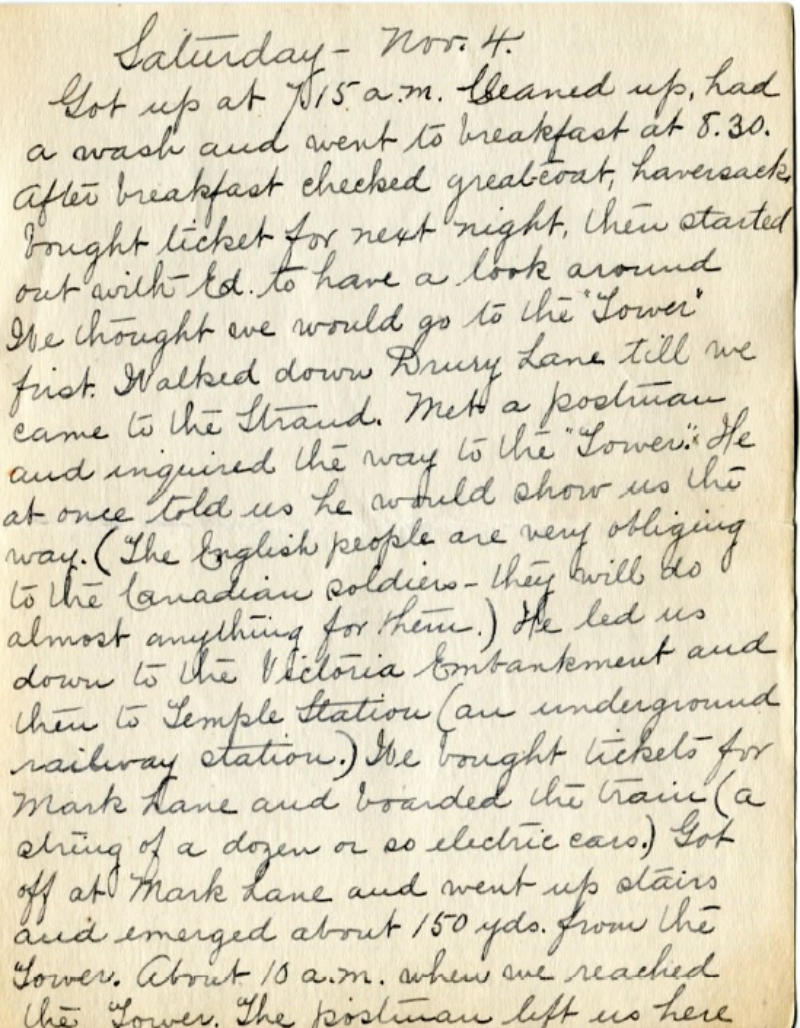 Saturday - Nov. 4.
Got up at 7.15 a.m. Cleaned up, had
a wash and went to breakfast at 8.30.
After breakfast checked greatcoat, haversack,
bought ticket for next night, then started
out with Ed. to have a look around
We thought we would go to the "Tower"
first. Walked down Drury Lane till we
came to the Strand. Met a postman
and inquired the way to the "Tower". He
at once told us he would show us the
way. (The English people are very obliging
to the Canadian soldiers - they will do
almost anything for them.) He led us
down to the Victoria Embankment and
then to Temple Station (an underground
railway station.) We bought tickets for
Mark Lane and boarded the train (a
string of a dozen or so electric cars.) Got
off at Mark Lane and went up stairs
and emerged about 150 yds. from the
Tower. About 10 a.m. when we reached
the Tower. The postman left us here